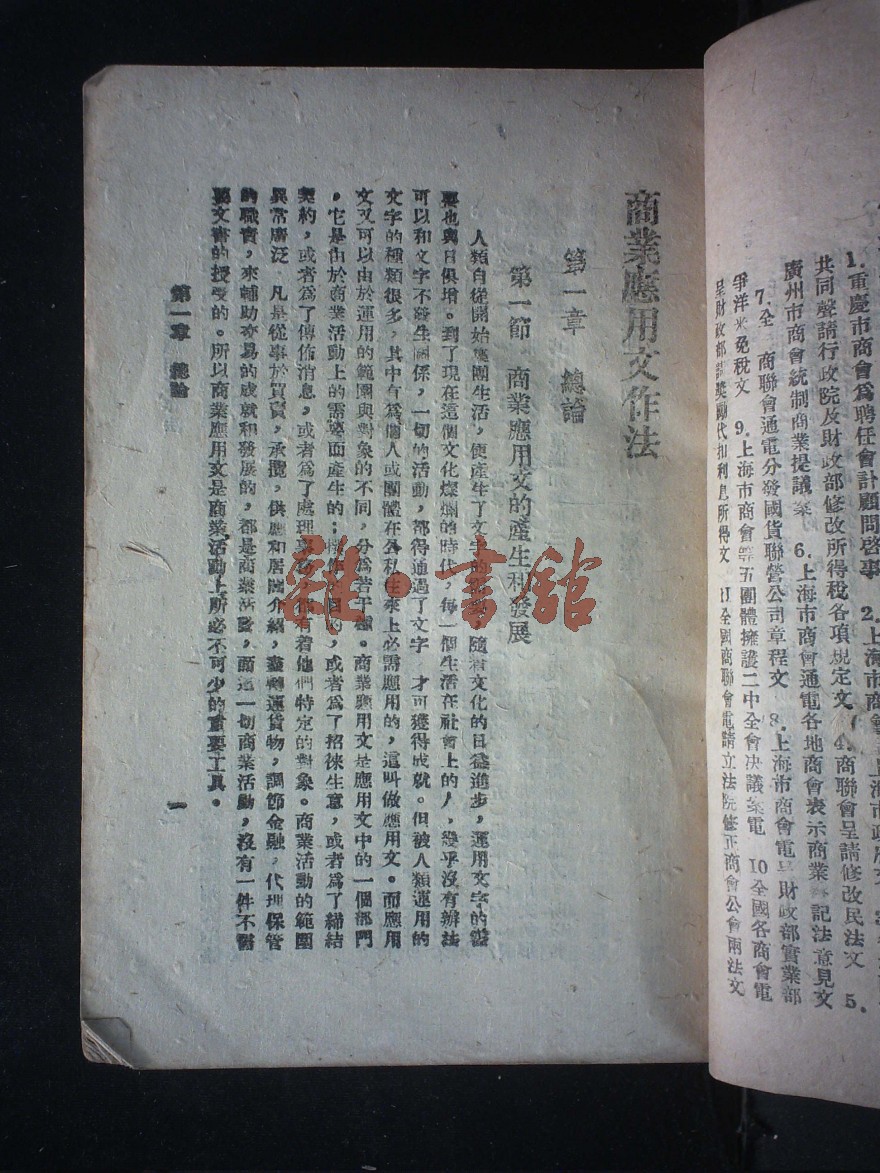 1.重慶市商會爲聘任會計顧問啓事 2.上海市商
共同聲請行政院及財政部修改所得稅各項規定文 4.商聯會呈請修改民法文 5.
廣州市商會統制商業提議案 6.上海市商會通電各地商會表示商業登記法意見文
7.全 商聯會通電分發國貨聯營公司章程文 8.上海市商會電呈財政部實業部
爭洋米免稅文 9.上海市商會等五團體擁護二中全會決議案電 10全國各商會電
呈財政部請獎勵代扣利息所得文 11全國商聯會電請立法院修正商會公會兩法文
商業應用文作法
第一章 總論
第一節 商業應用文的產生和發展
人類自從開始集團生活，便產生了文字的 ，隨着文化的日益進步，運用文字的需
要也與日俱增。到了現在這個文化燦爛的時代，每一個生活在社會上的人，幾乎沒有辦法
可以和文字不發生關係，一切的活動，都得通過了文字，才可獲得成就。但被人類運用的
文字的種類很多，其中有爲個人或團體在公私往來上必需應用的，這叫做應用文。而應用
文又可以由於運用的範圍與對象的不同，分爲若干種。商業應用文是應用文中的一個部門
，它是由於商業活動上的需要而產生的；牠的目的，或者爲了招徠生意，或者爲了締結
契約，或者爲了傳佈消息，或者爲了處理事務，都有着他們特定的對象。商業活動的範圍
異常廣泛，凡是從事於買賣，承攬，供應和居間介紹，盤轉運貨物，調節金融，代理保管
的職責，來輔助交易的成就和發展的，都是商業活動，而這一切商業活動，沒有一件不需
要文書的授受的。所以商業應用文是商業活動上所必不可少的重要工具。
第一章 總論
一
雜·書館